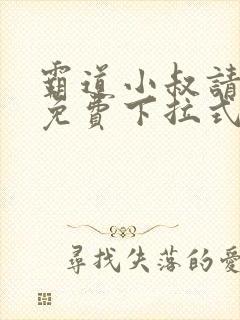 霸道小叔請
免費下拉式
尋找失落的愛